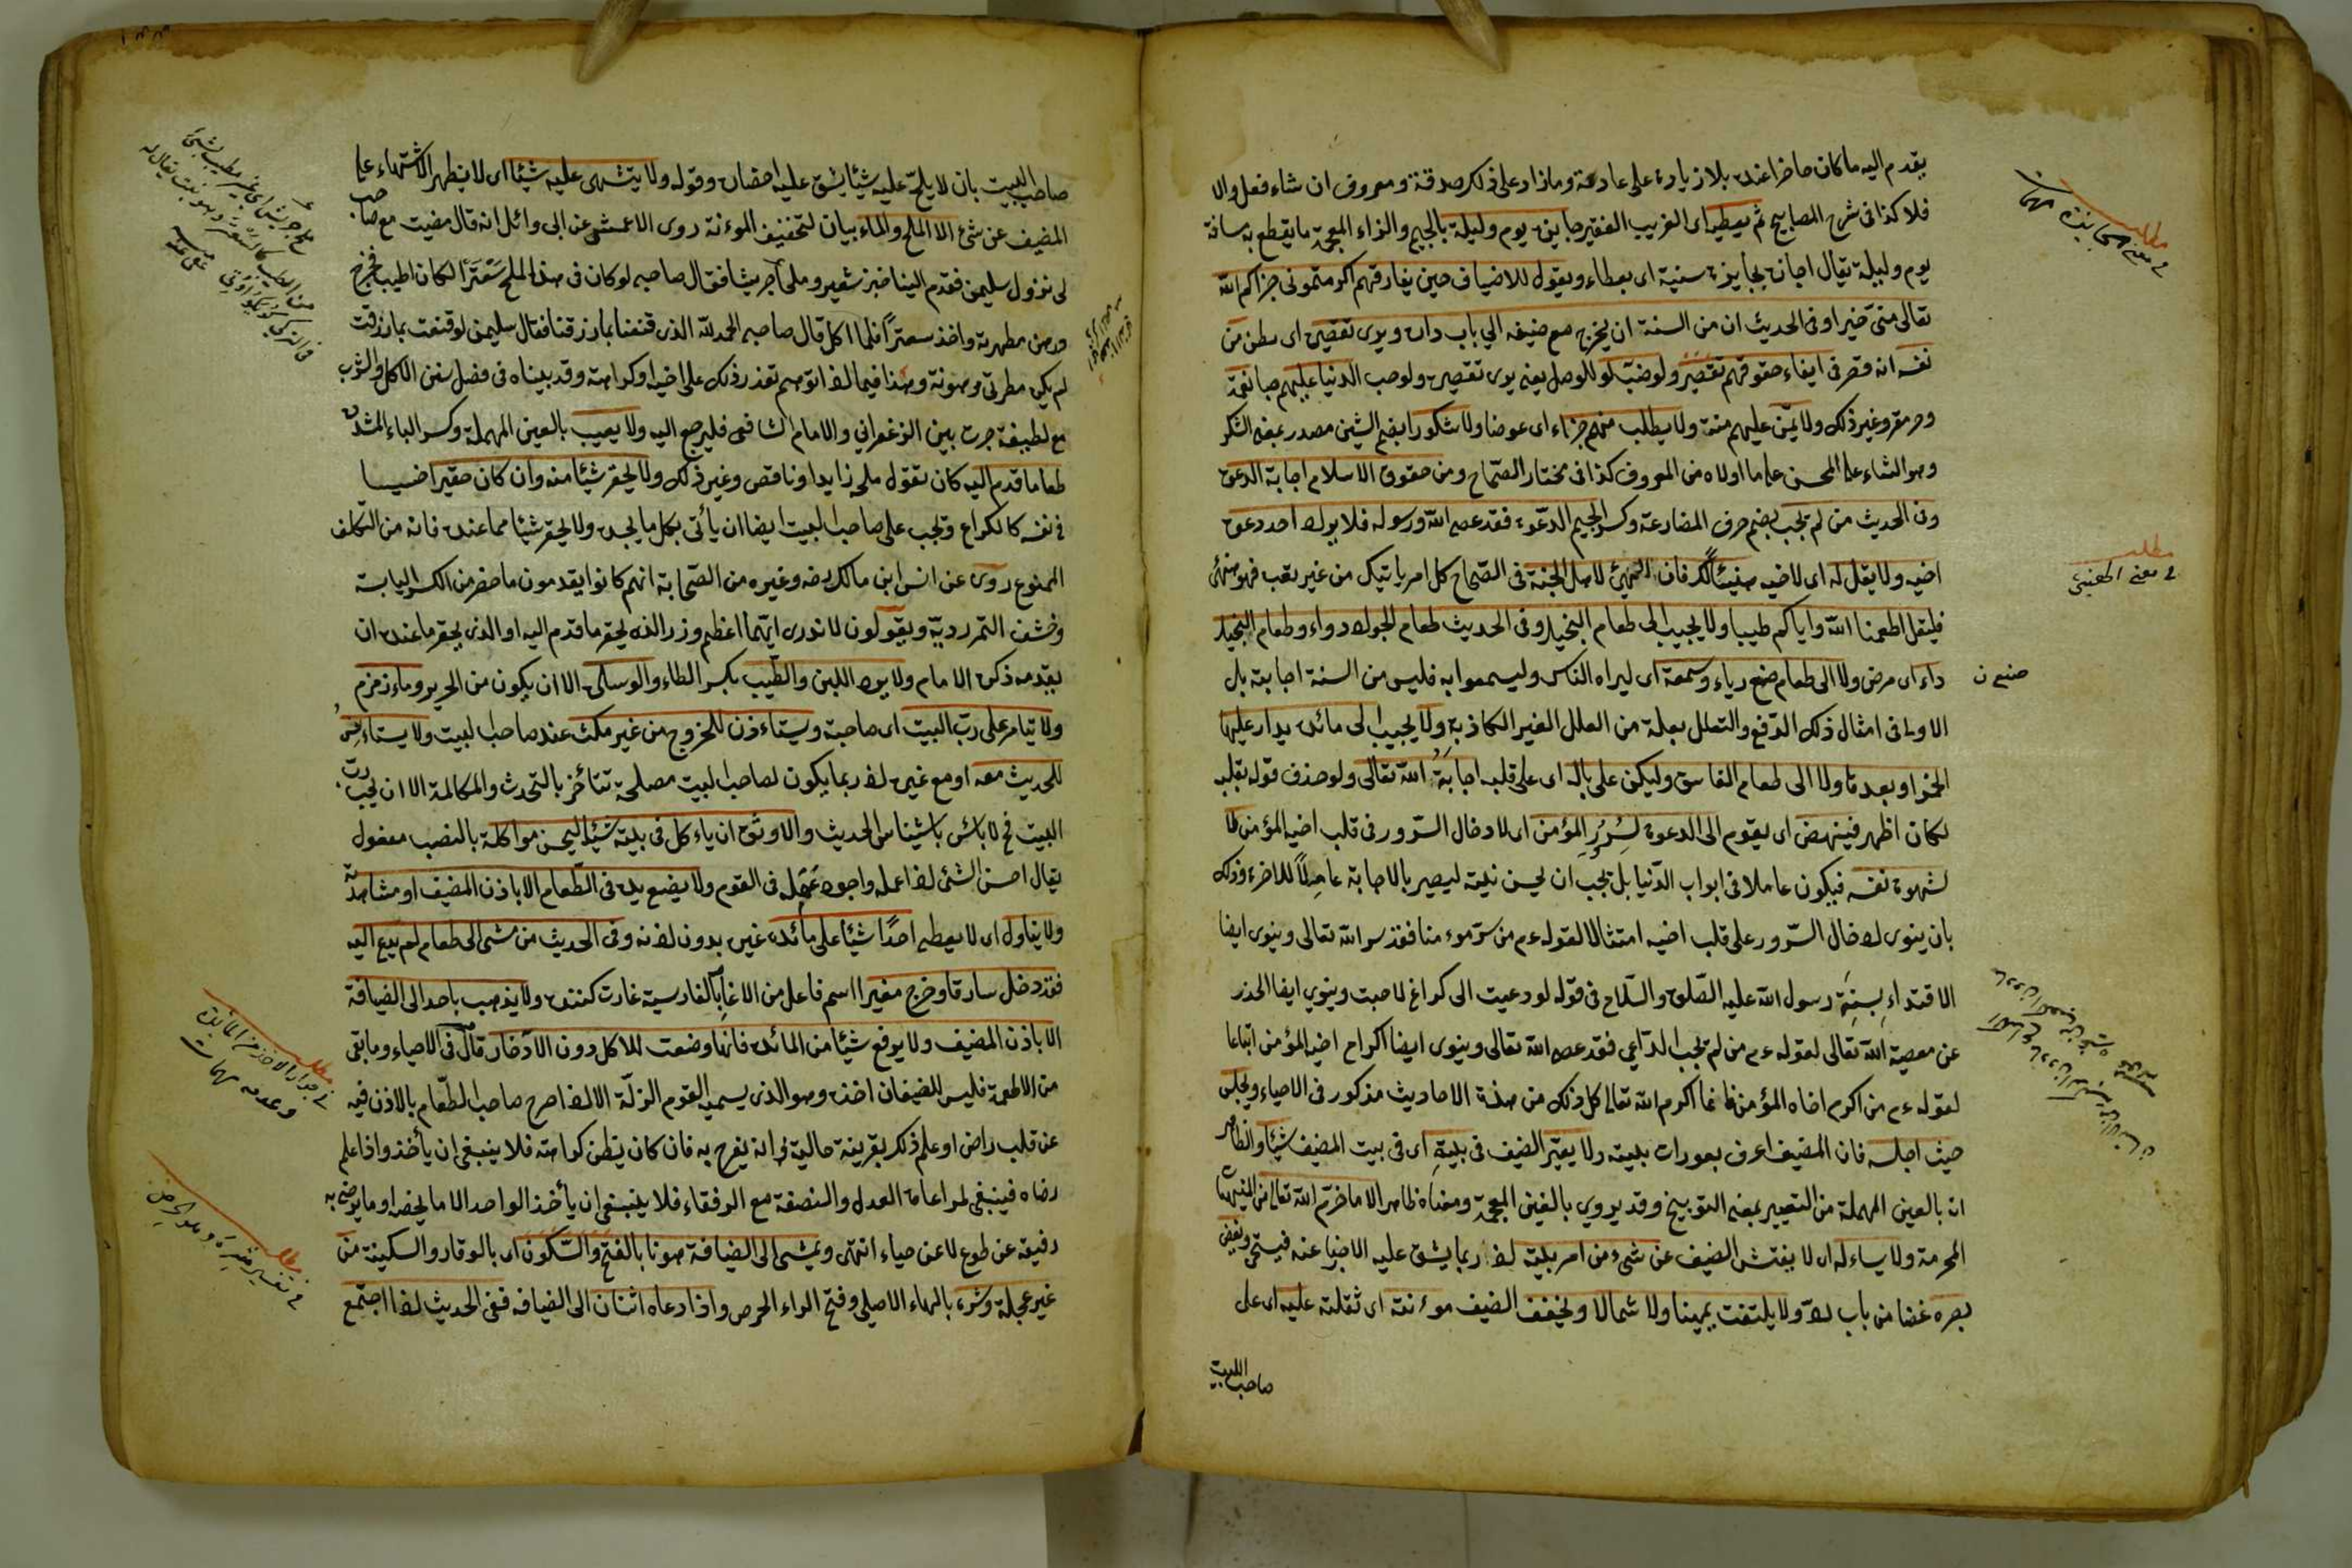 يقدم اليه ما كان حاضرا عنده بلا زيادة على عادته وما زاد على ذلك صدقة ومعروف ان شاء فعل والا
فلا كذا في شرح المصابيح ثم يعطيه اى الغريب الفقير جايزة يوم وليلة بالجيم والزاء المعجمة ما يقطع به مسافة
يوم وليلة يقال اجازه بجايزة سنية اى بعطاء ويقول للاضياف حين يفارقهم اكرمتموني جزاكم الله
تعالى منى خيرا وفى الحديث ان من السنة ان يخرج مع ضيفه الى باب داره ويرى تقصيره اى يظن من
نفسه انه قصر فى ايفاء حقوقهم تقصيرا ولو ضيّ لو للوصل يعنى يرى تقصيره ولو صب الدنيا عليهم صبا نعمة
وحرمة وغير ذلك ولا يمنّ عليهم منة ولا يطلب منهم جزاء اى عوضا ولا شكورا بضم الشين مصدر بمعنى الشكر
وهو الثناء على المحسن على ما اولاه من المعروف كذا فى مختار الصّحاح ومن حقوق الاسلام اجابة الدعوة
وفى الحديث من لم يجب بضم حرف المضارعة وكسر الجيم الدّعوة فقد عصى الله ورسوله فلا يرد احد دعوة
اخيه ولا يقل له اى لاخيه هنيئًا لك فان الهنئ لاهل الجنة فى الصّحاح كل امر يأتيك من غير تعب فهو هنئ
فليقل اطعمنا الله واياكم طيبا ولا يجيب الى طعام البخيل وفى الحديث طعام الجواد دواء وطعام البخيل
داء اى مرض ولا الى طعام صنع رياء وسمعة اى ليراه الناس وليسمعوا به فليس من السنة اجابته بل
الاولى فى امثال ذلك الدّفع والتعلل بعلة من العلل الغير الكاذبة ولا يجيب الى مائدة يدار عليها
الخمر او بعدها ولا الى طعام الفاسق وليكن على باله اى على قلبه اجابةُ الله تعالى ولو حذف قوله بقلبه
لكان اظهر فينهض اى يقوم الى الدعوة لسُرُرِ المؤمن اى لادخال السّرور فى قلب اخيه المؤمن لا
لشهوة نفسه فيكون عاملا فى ابواب الدّنيا بل يجب ان يحسن نيته ليصير بالاجابة عاملًا للاخرة وذلك
بان ينوى ادخال السّرور على قلب اخيه امتثالا لقوله عم من سرّ مؤمنا فقد سر الله تعالى وينوى ايضا
الاقتداء بسنة رسول الله عليه الصّلوة والسّلام فى قوله لو دعيت الى كراع لاجبت وينوي ايضا الحذر
عن معصية الله تعالى لقوله عم من لم يجب الدّاعي فقد عصى الله تعالى وينوى ايضا اكرام اخيه المؤمن اتباعا
لقوله عم من اكرم اخاه المؤمن فانما اكرم الله تعالى كل ذلك من هذه الاحاديث مذكور فى الاحياء ويجلس
حيث اجلسه فان المضيف اعرف بعورات بيته ولا يعيّر الضيف فى بيته اى فى بيت المضيف شيئا والظاهر
انه بالعين المهملة من التعيير بمعنى التوبيخ وقد يروي بالغين المعجمة ومعناه ظاهر الا ما حرّم الله تعالى من المنهيات
المحرمة ولا يساءله اى لا يفتش الضيف عن شئ من امر بيته اذ ربما يشق عليه الاخبار عنه فيستحى ويغض
بصره غضا من باب ردّ ولا يلتفت يمينا ولا شمالا ويخفف الضيف موءنته اى ثقلته عليه اى على
صاحب البيت
مطلب
فى معنى الجايزة مهمات
مطلب
فى معنى الهنئ
صنع ن
صاحب البيت بان لا يلحّ عليه شيئا يشق عليه احضاره وقوله ولا يتشهى عليه شيئا اى لا يظهر الاشتهاء على
المضيف عن شئ الا الملح والماء بيان لتخفيف الموءنة روى الاعمش عن ابى وائل انه قال مضيت مع صاحب
لى نزور سليمن فقدم الينا خبز شعير وملحا جريشا فقال صاحبى لو كان فى هذا الملح سَعْتَرًا لكان اطيب فخرج
ورهن مطهرته واخذ سعترًا فلما اكل قال صاحبى الحمد لله الذى قنعنا بما رزقنا فقال سليمن لو قنعت بما رزقت
لم يكن مطهرتى مرهونة وهذا فيما اذا توهم تعذر ذلك على اخيه او كراهته وقد بيناه فى فصل سنن الاكل والشرب
مع لطيفة جرت بين الزعفراني والامام الشافعى فليرجع اليه ولا يعيب بالعين المهملة وكسر الياء المشددة
طعاما قدم اليه كان تقول ملحه زايد او ناقص وغير ذلك ولا يحقر شيئا منه وان كان حقيرا خسيسا
فى نفسه كالكراع ويجب على صاحب البيت ايضا ان يأتى بكل ما يجده ولا يحقر شيئا مما عنده فانه من التكلف
الممنوع روى عن انس ابن مالك رضه وغيره من الصّحابة انهم كانوا يقدمون ما حضر من الكسر اليابسة
وحشف التمر رديّه ويقولون لا ندرى ايّهما اعظم وزرا الذى يحقر ما قدم اليه او الذى يحقر ما عنده ان
يقدمه ذكره الامام ولا يرد اللبن والطّيب بكسر الطاء والوسادة الا ان يكون من الحرير وماء زمزم
ولا يتامر على ربّ البيت اى صاحبه ويستاءذن للخروج من غير مكث عند صاحب البيت ولا يستاءنس
للحديث معه او مع غيره اذ ربما يكون لصاحب البيت مصلحة تتأخر بالتحدث والمكالمة الا ان يحب ربّ
البيت فح لا بائس باستيناس الحديث والاوثق ان ياءكل فى بيته شيئا ليحسن مواكلة بالنصب مفعول
يقال احسن الشئ اذا عمله واجوده عَمَله فى القوم ولا يضع يده فى الطّعام الا باذن المضيف او مشاهدته
ولا يناول اى لا يعطى احدًا شيئا على مائدة غيره بدون اذنه وفى الحديث من مشى الى طعام لم يدع اليه
فقد دخل سارقا وخرج مغيرا اسم فاعل من الاغارة بالفارسية غارت كننده ولا يذهب باحد الى الضيافة
الا باذن المضيف ولا يرفع شيئا من المائدة فانها وضعت للاكل دون الادّخار قال فى الاحياء وما بقى
من الاطعمة فليس للضيفان اخذه وهو الذى يسميه القوم الزلّة الا اذا صرح صاحب الطّعام بالاذن فيه
عن قلب راض او علم ذلك بقرينة حالية وانه يفرح به فان كان يظن كراهته فلا ينبغى ان يأخذ واذا علم
رضاه فينبغى مراعاة العدل والنصفة مع الرفقاء فلا ينبغى ان يأخذ الواحد الا ما يخصه او ما يرضى به
رفيقه عن طوع لا عن حياء انتهى ويمشى الى الضيافة هونا بالفتح والسّكون اى بالوقار والسكينة من
غير عجلة وشره بالهاء الاصلى وفتح الراء الحرص واذا دعاه اثنان الى الضيافه ففى الحديث اذا اجتمع
ملح جريش اى غير مطيب
مطلب
فى جواز الاخذ من المائدة
وعدمه مهمات
مطلب
فى تفسير شره وهو الحرص